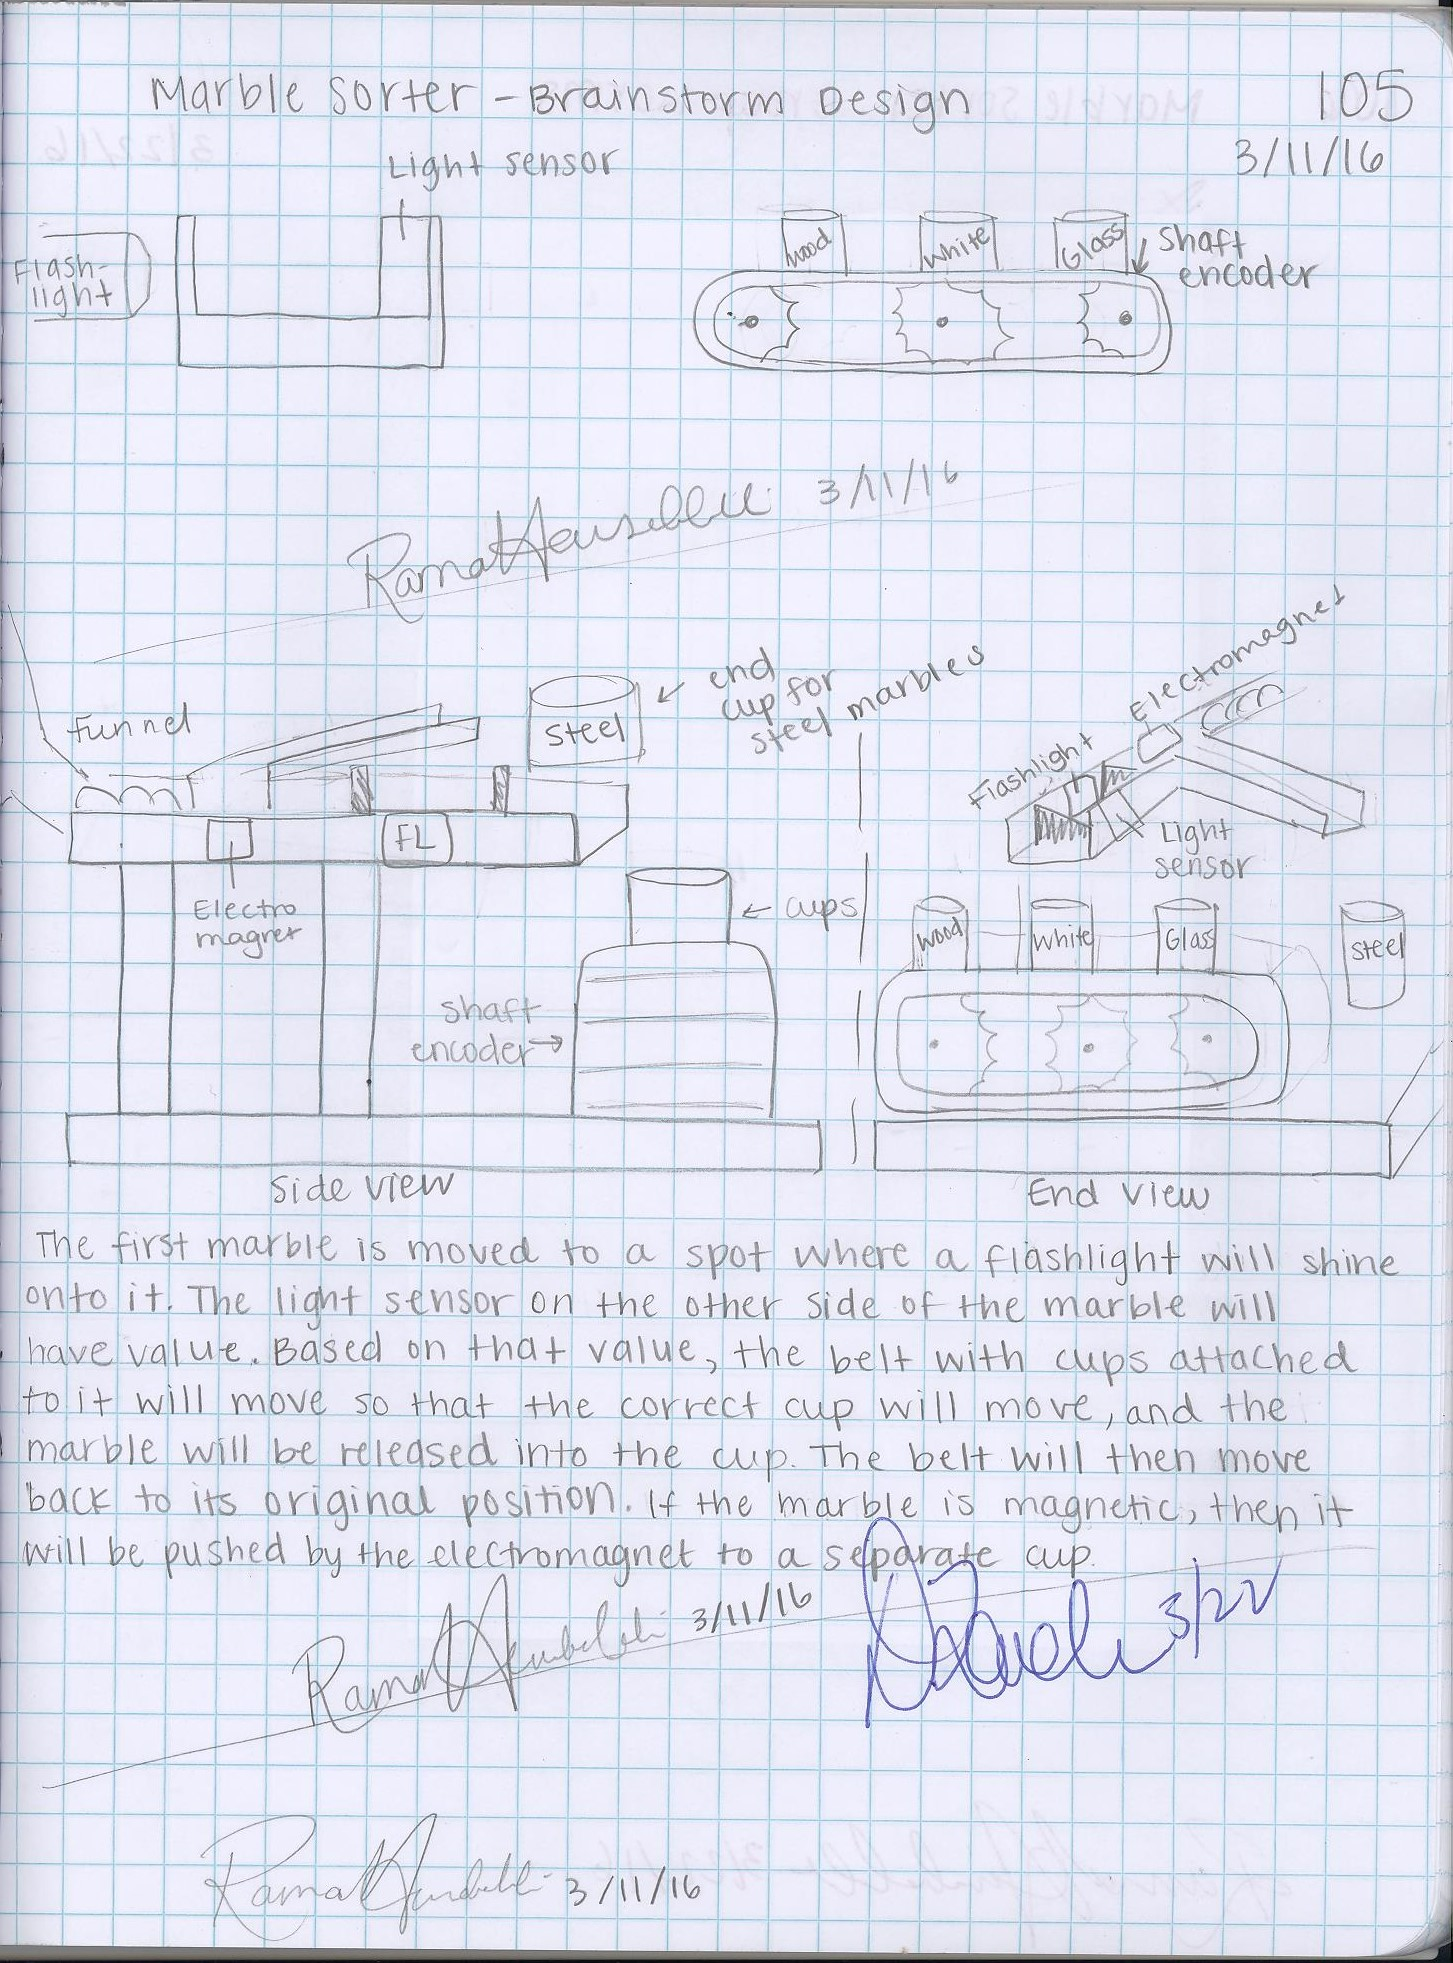 Marble Sorter - Brainstorm Design
105
3/11/16
Light sensor
Flash-
light
wood
White
Glass
Shaft
encoder
3/11/16
Funnel
steel
end
cup for
steel marbles
Electromagnet
Flashlight
Light
sensor
FL
Electro
magnet
cups
shaft
encoder
wood
White
Glass
steel
Side View
End View
The first marble is moved to a spot where a flashlight will shine
onto it. The light sensor on the other side of the marble will
have value. Based on that value, the belt with cups attached
to it will move so that the correct cup will move, and the
marble will be released into the cup. The belt will then move
back to its original position. If the marble is magnetic, then it
will be pushed by the electromagnet to a separate cup.
3/11/16
3/22
3/11/16